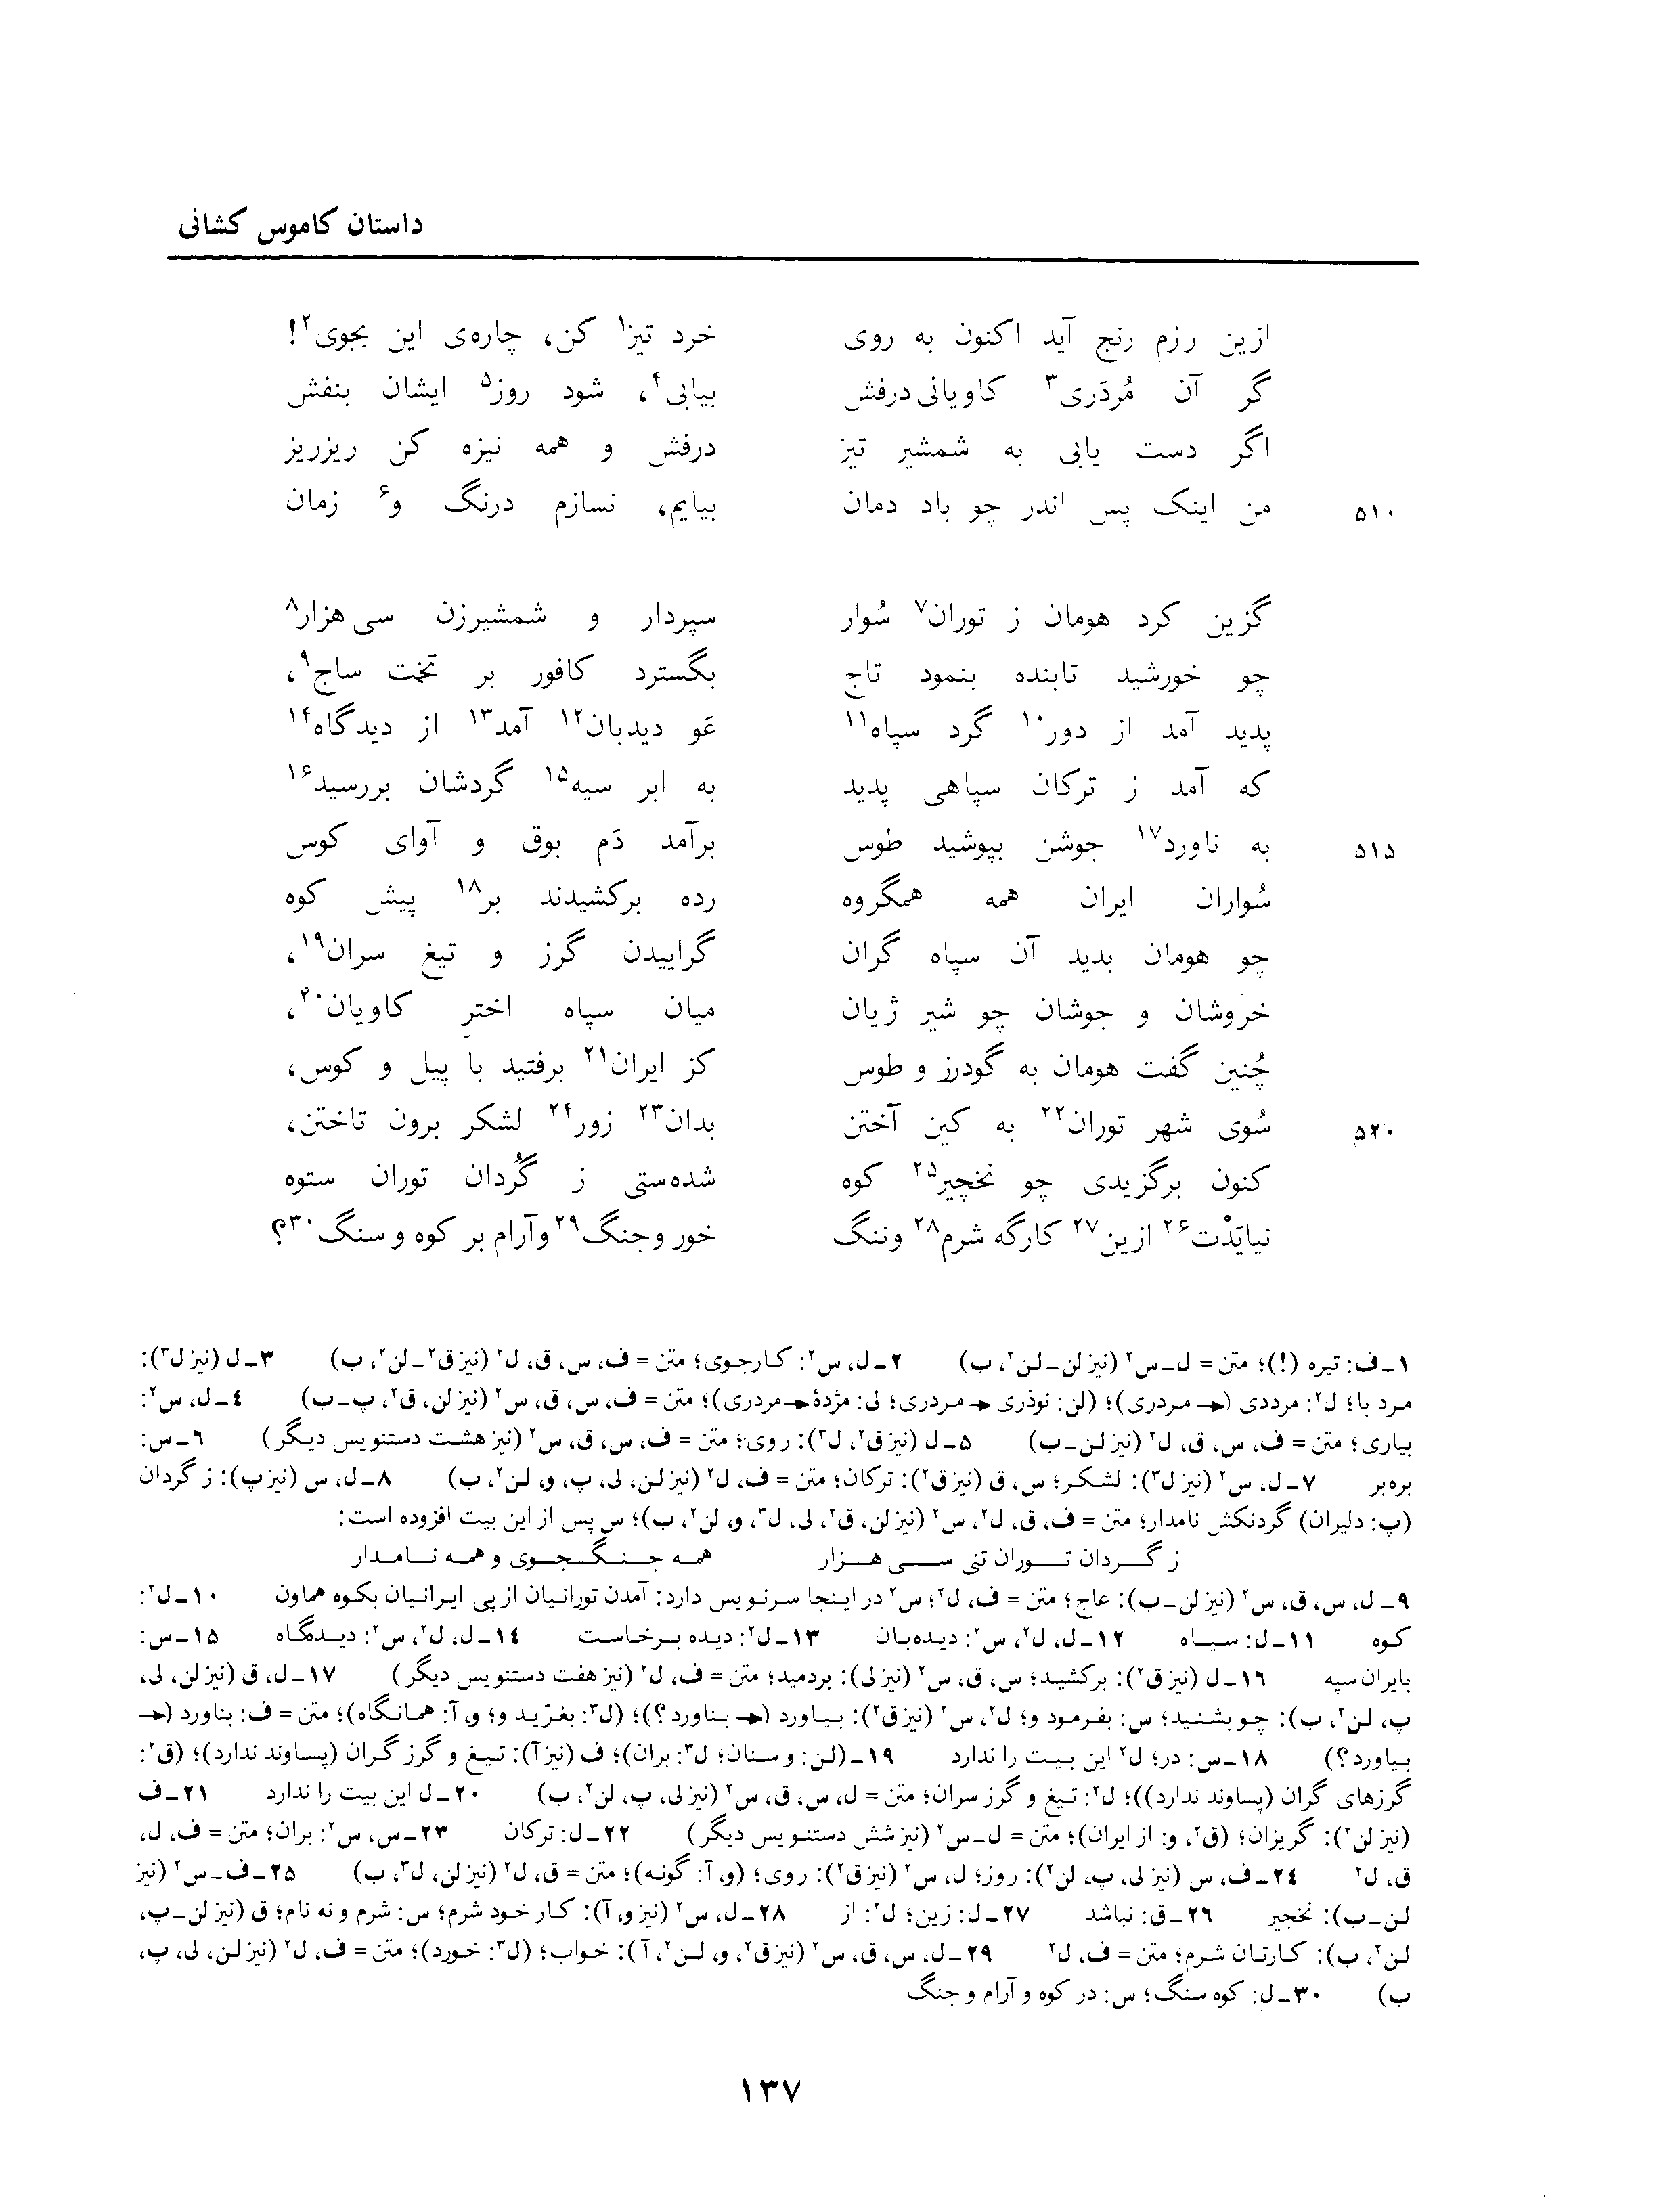 داستان کاموس کشانی
ازین رزم رنج آید اکنون به روی خرد تیز۱ کن، چاره‌ی این بجوی۲!
گر آن مُردَری۳ کاویانی درفش بیابی۴، شود روز۵ ایشان بنفش
اگر دست یابی به شمشیر تیز درفش و همه نیزه کن ریزریز
۵۱۰ من اینک پس اندر چو باد دمان بیایم، نسازم درنگ و۶ زمان
گزین کرد هومان ز توران۷ سُوار سپردار و شمشیرزن سی هزار۸
چو خورشید تابنده بنمود تاج بگسترد کافور بر تخت ساج۹،
پدید آمد از دور۱۰ گرد سپاه۱۱ غَو دیدبان۱۲ آمد۱۳ از دیدگاه۱۴
که آمد ز ترکان سپاهی پدید به ابر سیه۱۵ گردشان بررسید۱۶
۵۱۵ به ناورد۱۷ جوشن بپوشید طوس برآمد دَم بوق و آوای کوس
سُواران ایران همه همگروه رده برکشیدند بر۱۸ پیش کوه
چو هومان بدید آن سپاه گران گراییدن گرز و تیغ سران۱۹،
خروشان و جوشان چو شیر ژیان میان سپاه اخترِ کاویان۲۰،
چُنین گفت هومان به گودرز و طوس کز ایران۲۱ برفتید با پیل و کوس،
۵۲۰ سُوی شهر توران۲۲ به کین آختن بدان۲۳ زور۲۴ لشکر برون تاختن،
کنون برگزیدی چو نخچیر۲۵ کوه شده‌ستی ز گُردان توران ستوه
نیایَدْت۲۶ ازین۲۷ کارگه شرم۲۸ وننگ خور و جنگ۲۹ و آرام بر کوه و سنگ۳۰؟
۱ـ ف: تیره (!)؛ متن = ل ـ س۲ (نیز لن ـ لن۲، ب) ۲ـ ل، س۲: کارجوی؛ متن = ف، س، ق، ل۲ (نیز ق۲ ـ لن۲، ب) ۳ـ ل (نیز ل۳):
مرد با؛ ل۲: مرددی (← مردری)؛ (لن: نوذری ← مردری؛ لی: مژدهٔ ← مردری)؛ متن = ف، س، ق، س۲ (نیز لن، ق۲، پ ـ ب) ۴ـ ل، س۲:
بیاری؛ متن = ف، س، ق، ل۲ (نیز لن ـ ب) ۵ـ ل (نیز ق۲، ل۳): روی؛ متن = ف، س، ق، س۲ (نیز هشت دستنویس دیگر) ۶ـ س:
بره‌بر ۷ـ ل، س۲ (نیز ل۳): لشکر؛ س، ق (نیز ق۲): ترکان؛ متن = ف، ل۲ (نیز لن، لی، پ، و، لن۲، ب) ۸ـ ل، س (نیز پ): ز گردان
(پ: دلیران) گردنکش نامدار؛ متن = ف، ق، ل۲، س۲ (نیز لن، ق۲، لی، ل۳، و، لن۲، ب)؛ س پس از این بیت افزوده است:
ز گردان توران تنی سی هزار همه جنگجوی و همه نامدار
۹ـ ل، س، ق، س۲ (نیز لن ـ ب): عاج؛ متن = ف، ل۲؛ س۲ در اینجا سرنویس دارد: آمدن تورانیان از پی ایرانیان بکوه هماون ۱۰ـ ل۲:
کوه ۱۱ـ ل: سیاه ۱۲ـ ل، ل۲، س۲: دیده‌بان ۱۳ـ ل۲: دیده برخاست ۱۴ـ ل، ل۲، س۲: دیدگاه ۱۵ـ س:
بایران سپه ۱۶ـ ل (نیز ق۲): برکشید؛ س، ق، س۲ (نیز لی): بردمید؛ متن = ف، ل۲ (نیز هفت دستنویس دیگر) ۱۷ـ ل، ق (نیز لن، لی،
پ، لن۲، ب): چو بشنید؛ س: بفرمود و؛ ل۲، س۲ (نیز ق۲): بیاورد (← بناورد؟)؛ (ل۳: بغرّید و؛ و، آ: همانگاه)؛ متن = ف: بناورد (←
بیاورد؟) ۱۸ـ س: در؛ ل۲ این بیت را ندارد ۱۹ـ (لن: و سنان؛ ل۳: بران)؛ ف (نیز آ): تیغ و گرز گران (پساوند ندارد)؛ (ق۲:
گرزهای گران (پساوند ندارد))؛ ل۲: تیغ و گرز سران؛ متن = ل، س، ق، س۲ (نیز لی، پ، لن۲، ب) ۲۰ـ ل این بیت را ندارد ۲۱ـ ف
(نیز لن۲): گریزان؛ (ق۲، و: از ایران)؛ متن = ل ـ س۲ (نیز شش دستنویس دیگر) ۲۲ـ ل: ترکان ۲۳ـ س، س۲: بران؛ متن = ف، ل،
ق، ل۲ ۲۴ـ ف، س (نیز لی، پ، لن۲): روز؛ ل، س۲ (نیز ق۲): روی؛ (و، آ: گونه)؛ متن = ق، ل۲ (نیز لن، ل۳، ب) ۲۵ـ ف ـ س۲ (نیز
لن ـ ب): نخجیر ۲۶ـ ق: نباشد ۲۷ـ ل: زین؛ ل۲: از ۲۸ـ ل، س۲ (نیز و، آ): کار خود شرم؛ س: شرم و نه نام؛ ق (نیز لن ـ پ،
لن۲، ب): کارتان شرم؛ متن = ف، ل۲ ۲۹ـ ل، س، ق، س۲ (نیز ق۲، و، لن۲، آ): خواب؛ (ل۳: خورد)؛ متن = ف، ل۲ (نیز لن، لی، پ،
ب) ۳۰ـ ل: کوه سنگ؛ س: در کوه و آرام و جنگ
۱۳۷